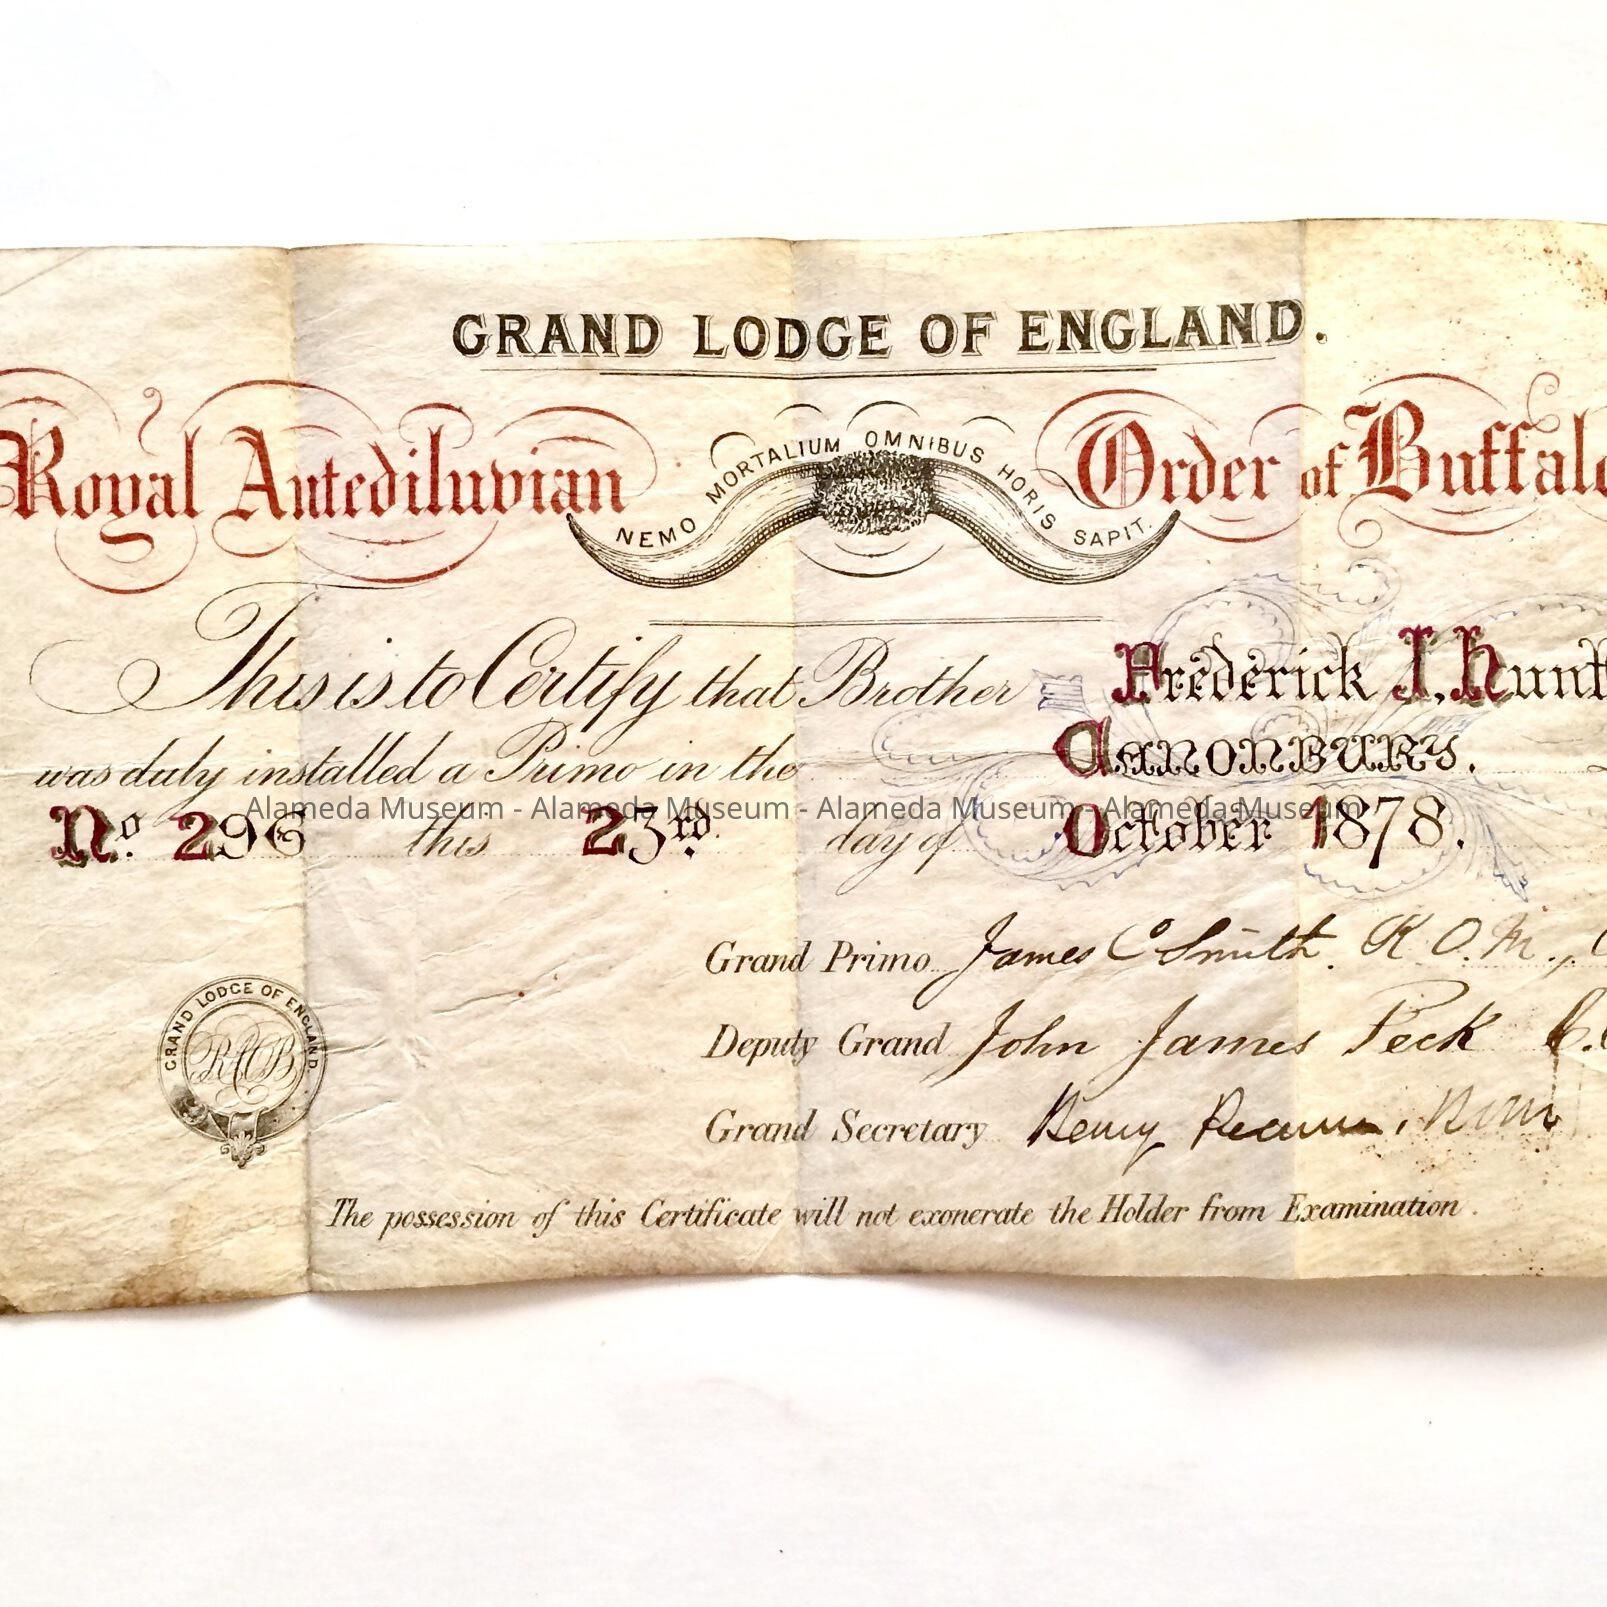 GRAND LODGE OF ENGLAND.
Royal Antediluvian Order of Buffalo
NEMO MORTALIUM OMNIBUS HORIS SAPIT.
This is to Certify that Brother Frederick J. Hunt
was duly installed a Primo in the Canonbury.
Alameda Museum - Alameda Museum - Alameda Museum - Alameda Museum
No. 296 this 23rd. day of October 1878.
Grand Primo James C Smith. K O. M.,
Deputy Grand John James Peck
Grand Secretary Henry
GRAND LODGE OF ENGLAND.
RAOB
The possession of this Certificate will not exonerate the Holder from Examination.